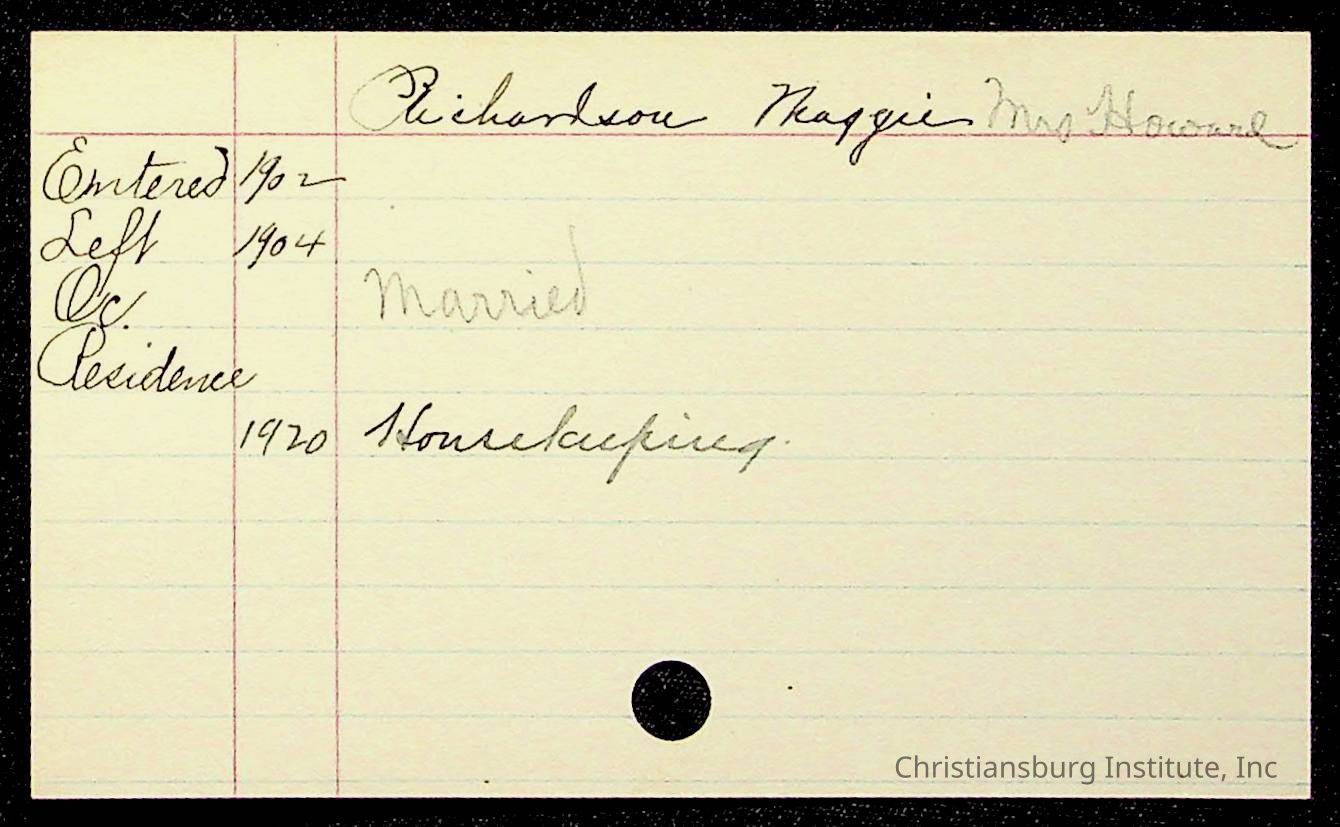 Richardson Maggie Mrs Howard
Entered 1902
Left 1904
Oc. Married
Residence
1920 Housekeeping.
Christiansburg Institute, Inc